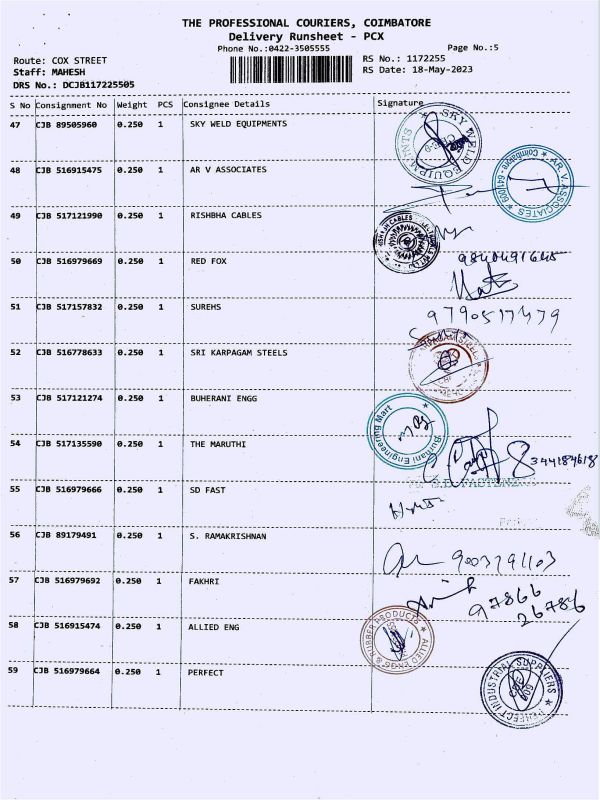 THE PROFESSIONAL COURIERS, COIMBATORE
Delivery Runsheet - PCX
Phone No.:0422-3505555 Page No.:5
Route: COX STREET RS No.: 1172255
Staff: MAHESH RS Date: 18-May-2023
DRS No.: DCJB117225505
S No Consignment No Weight PCS Consignee Details Signature
47 CJB 89505960 0.250 1 SKY WELD EQUIPMENTS
SKY WELD EQUIPMENTS
48 CJB 516915475 0.250 1 AR V ASSOCIATES
AR. V. ASSOCIATES
49 CJB 517121990 0.250 1 RISHBHA CABLES
50 CJB 516979669 0.250 1 RED FOX
51 CJB 517157832 0.250 1 SUREHS
52 CJB 516778633 0.250 1 SRI KARPAGAM STEELS
53 CJB 517121274 0.250 1 BUHERANI ENGG
Burhani Engineering Mart
54 CJB 517135590 0.250 1 THE MARUTHI
55 CJB 516979666 0.250 1 SD FAST
56 CJB 89179491 0.250 1 S. RAMAKRISHNAN
57 CJB 516979692 0.250 1 FAKHRI
97866
26786
58 CJB 516915474 0.250 1 ALLIED ENG
ALLIED ENGG & RUBBER PRODUCTS
59 CJB 516979664 0.250 1 PERFECT
PERFECT INDUSTRIAL SUPPLIERS